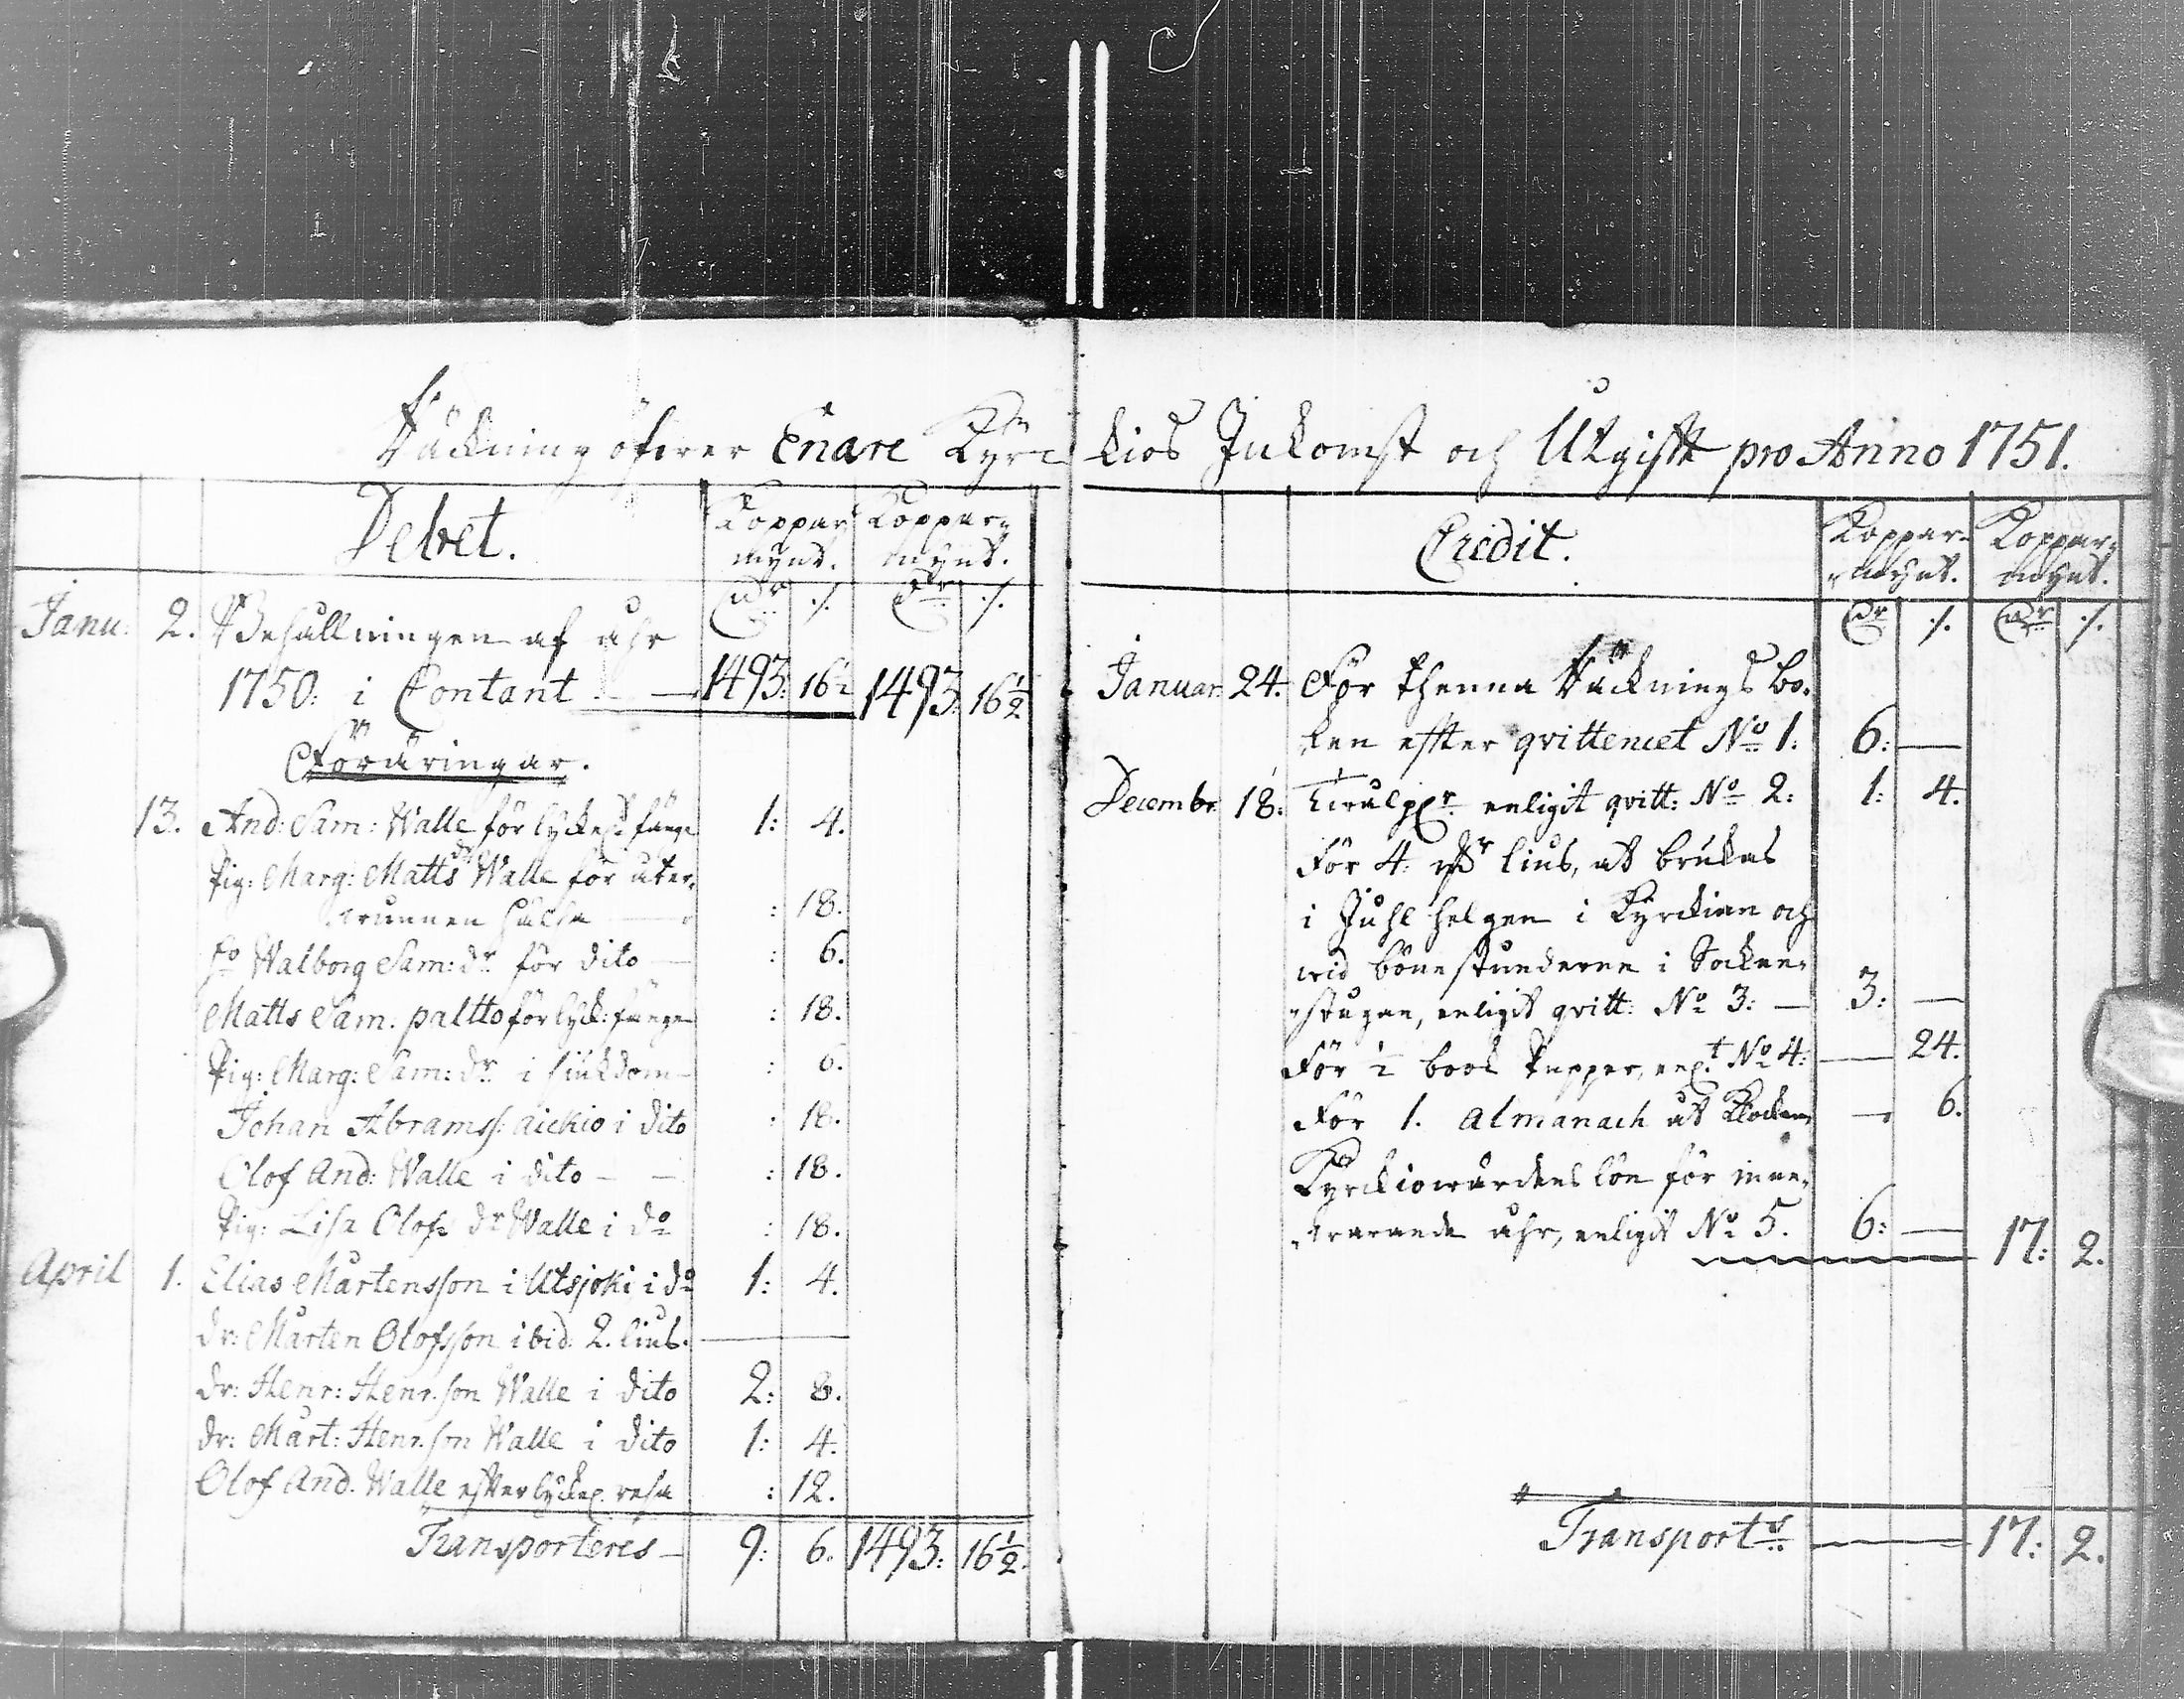 Räckning öfwer Enare Kyrc kios Inkomst och Utgifft pro Anno 1751.
Debet.
Koppar mynt. Koppar mynt.
Dr ./. Dr ./.
Janu: 2. Behållningen af åhr
1750: i Contant 1493: 16½ 1493: 16½
Föräringar.
13. And: Sam: Walle för lyckel. fänge 1: 4.
Pig: Marg: Matts dr Walle för åter-
wunnen hälsa : 18.
Walborg Sam: dr för dito : 6.
Matts Sam. paltto för lyck: fänge : 18.
Pig: Marg: Sam: dr i siukdom : 6.
Johan Abramss: aickio i dito : 18.
Olof And: Walle i dito : 18.
Pig: Lisa Olofs dr Walle i do : 18.
April 1. Elias Mårtensson i Utsjoki i do 1: 4.
dr: Mårten Olofsson ibid. 2. lius.
dr: Henr: Henr.son Walle i dito 2: 8.
dr: Mårt: Henr.son Walle i dito 1: 4.
Olof And. Walle effter lyckel. resa : 12.
Transporteres 9: 6. 1493: 16½.
Credit.
Koppar- mynt. Koppar- mynt.
Dr ./. Dr ./.
Januar: 24. För thenna Räcknings bo-
ken effter qvittencet No 1: 6: —
Decembr 18: enligit qvitt: No 2: 1: 4.
För 4: lius, at brukas
i Juhl helgen i Kyrckian och
wid bönestunderne i Sockne-
stugan, enligit qvitt: No 3: 3: —
För ½ book papper, enl.t No 4: — 24.
För 1. Almanach åt Klockaren — 6.
Kyrckiowärdens lön för inne-
warande åhr, enligit No 5. 6: — 17: 2.
Transports 17: 2.